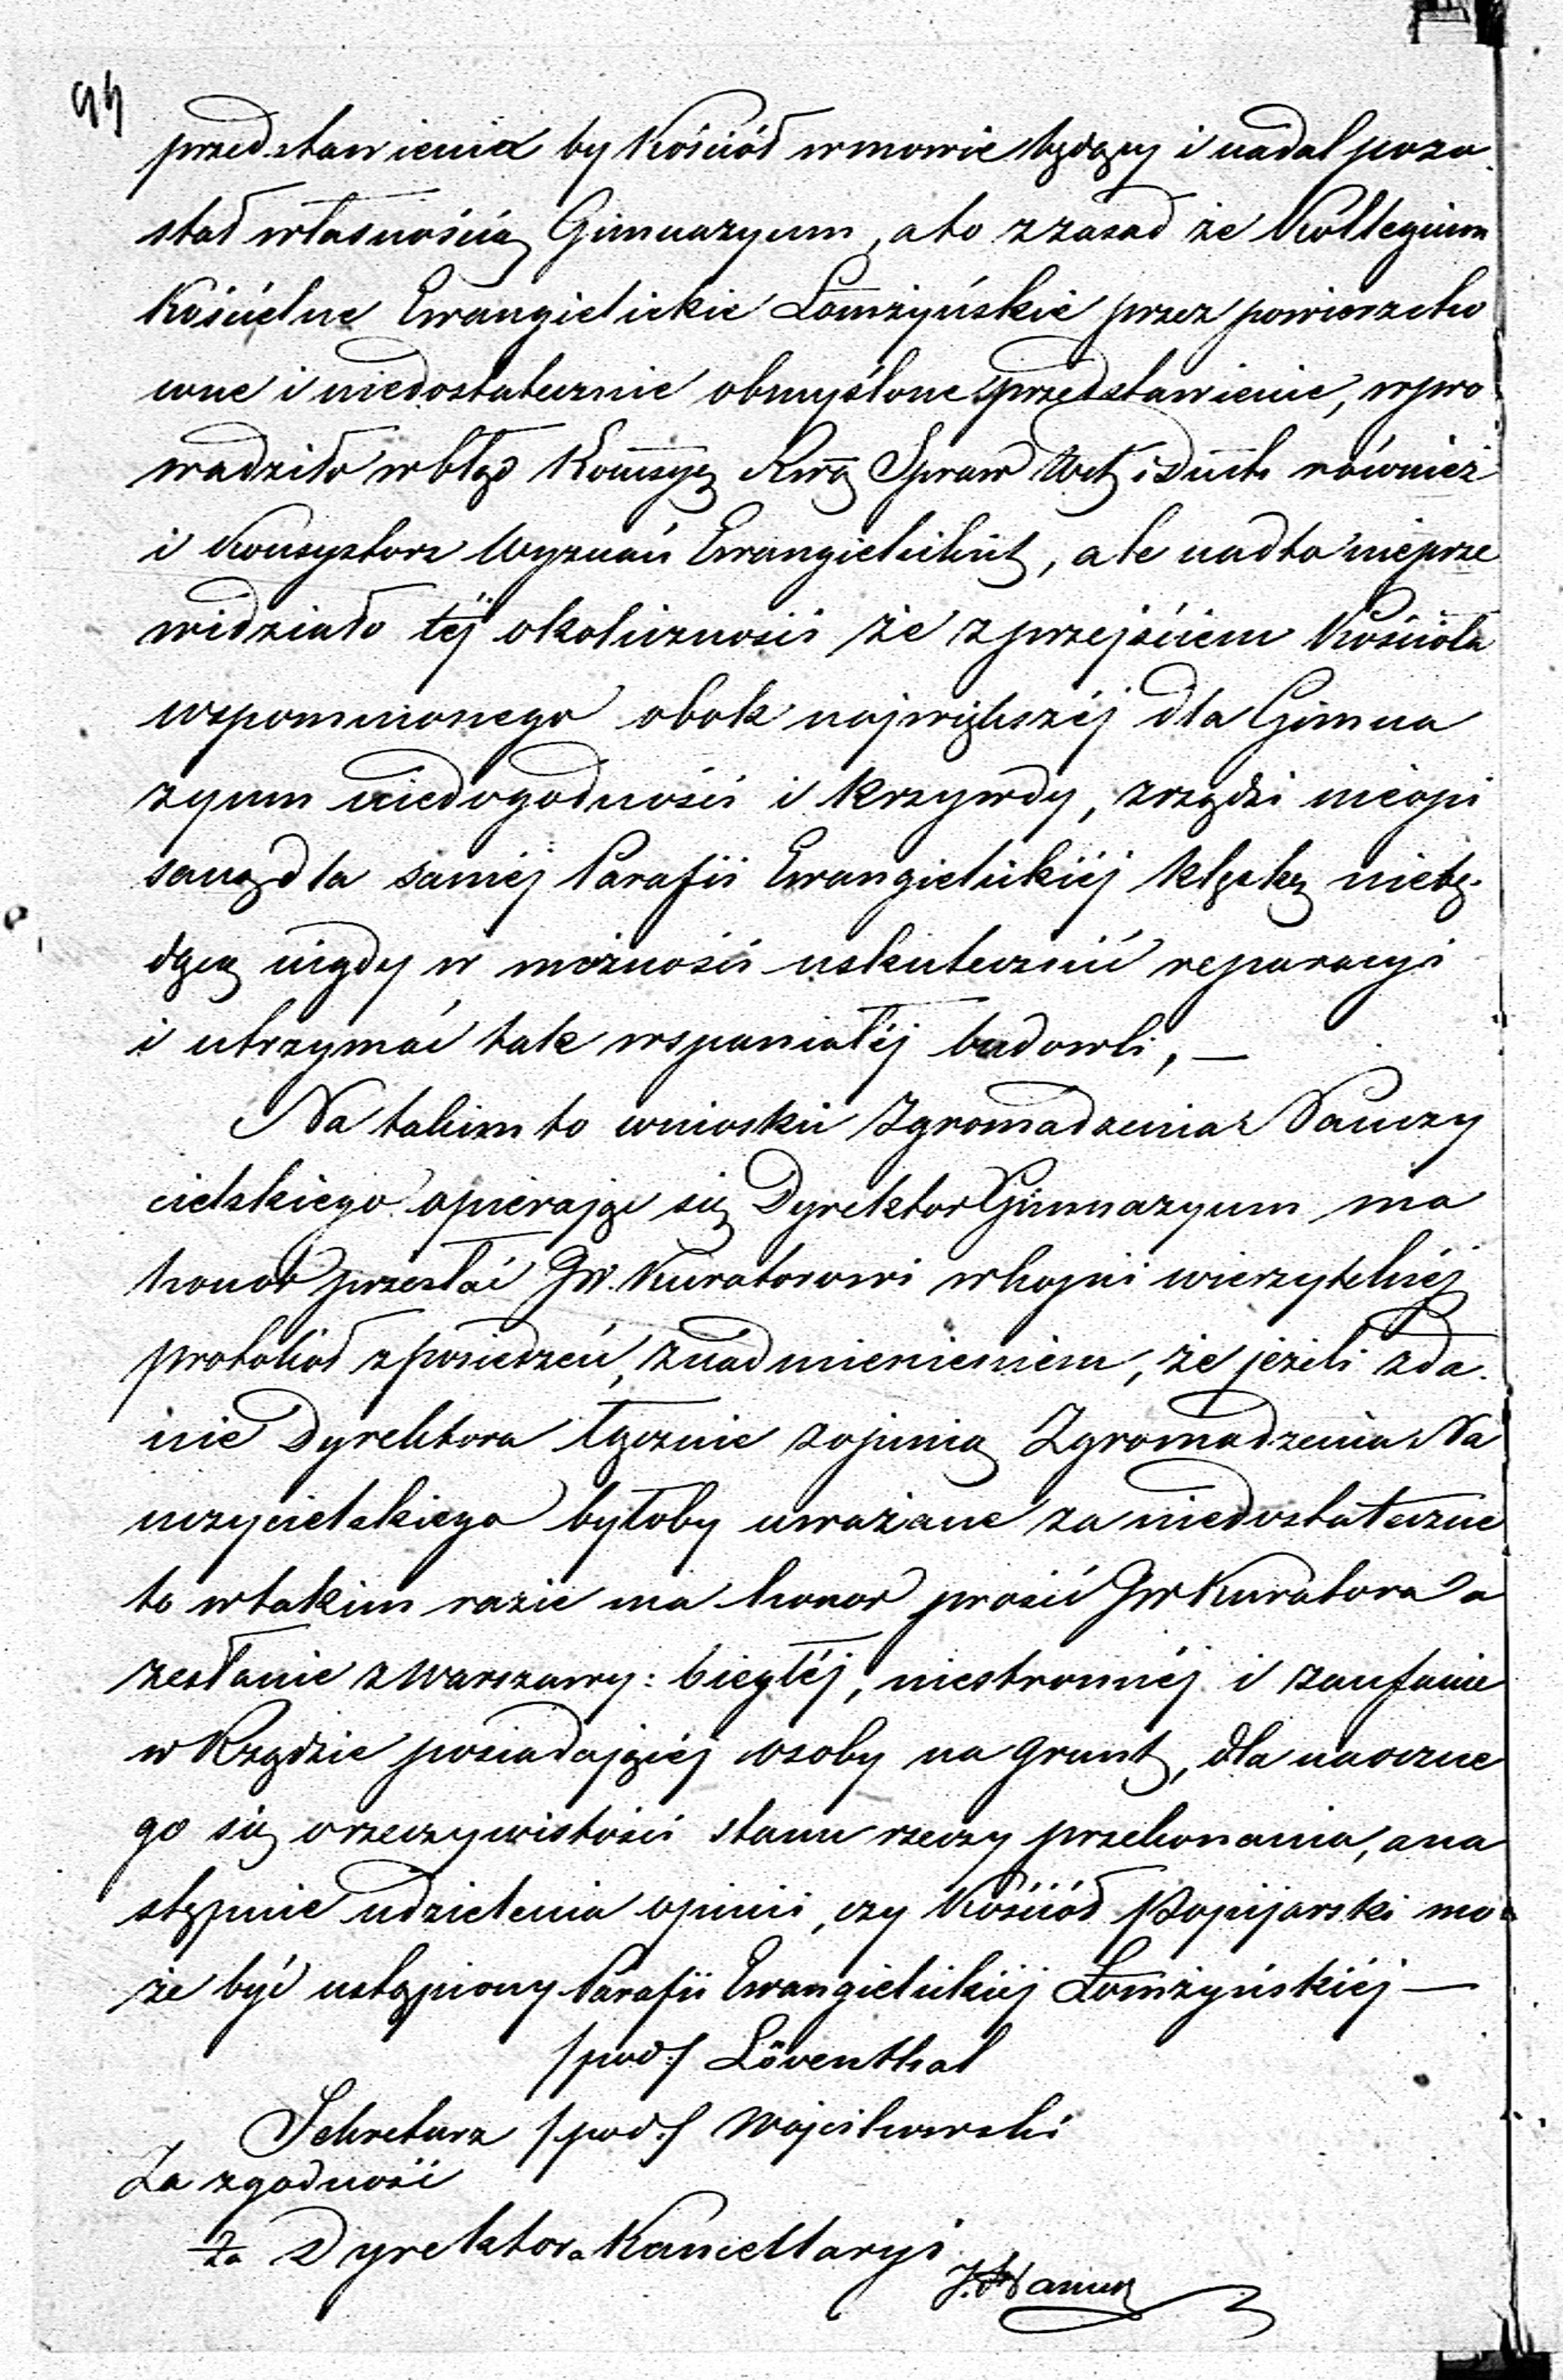 94
przedstawienia by Kościół w mowie będący i nadal pozo
stał własnością Gimnazyum, a to z zasad że Kollegium
Kościelne Ewangielickie Łomżyńskie przez powierzcho
wne i niedostatecznie obmyślone przedstawienie, wpro
wadziło w błąd Kommsyą Rwą Spraw Wch i Duch. również
i Konsystorz Wyznań Ewangielickich, ale nadto nieprze
widziało téj okoliczności że z przejściem Kościoła
wspomnionego obok największéj dla Gimna
zyum niedogodności i krzywdy, zrządzi nieopi
saną dla saméj Parafii Ewangielickiéj klęskę niebę-
dącą nigdy w możności uskutecznić reparacyi
i utrzymać tak wspaniałéj budowli, —
Na takim to wniosku Zgromadzenia Nauczy
cielskiego opierając się Dyrektor Gimnazyum ma
honor przesłać JW. Kuratorowi w kopii wierzytelnéj
protokół z posiedzeń, z nadmienieniem, że jeżeli zda-
nie Dyrektora łącznie z opinią Zgromadzenia Na
uczycielskiego byłoby uważane za niedostateczne
to w takim razie ma honor prosić JW Kuratora o
zesłanie z Warszawy: biegłéj, niestronnéj i zaufanie
w Rządzie posiadającéj osoby na grunt, dla naoczne
go się o rzeczywistości stanu rzeczy przekonania, a na
stępnie udzielenia opinii, czy Kościół Popijarski mo-
że być ustąpiony Parafii Ewangielickiéj Łomżyńskiéj —
/pod:/ Löventhal
Sekretarz /pod:/ Wojcikowski
Za zgodność
Za Dyrektora Kancellaryi